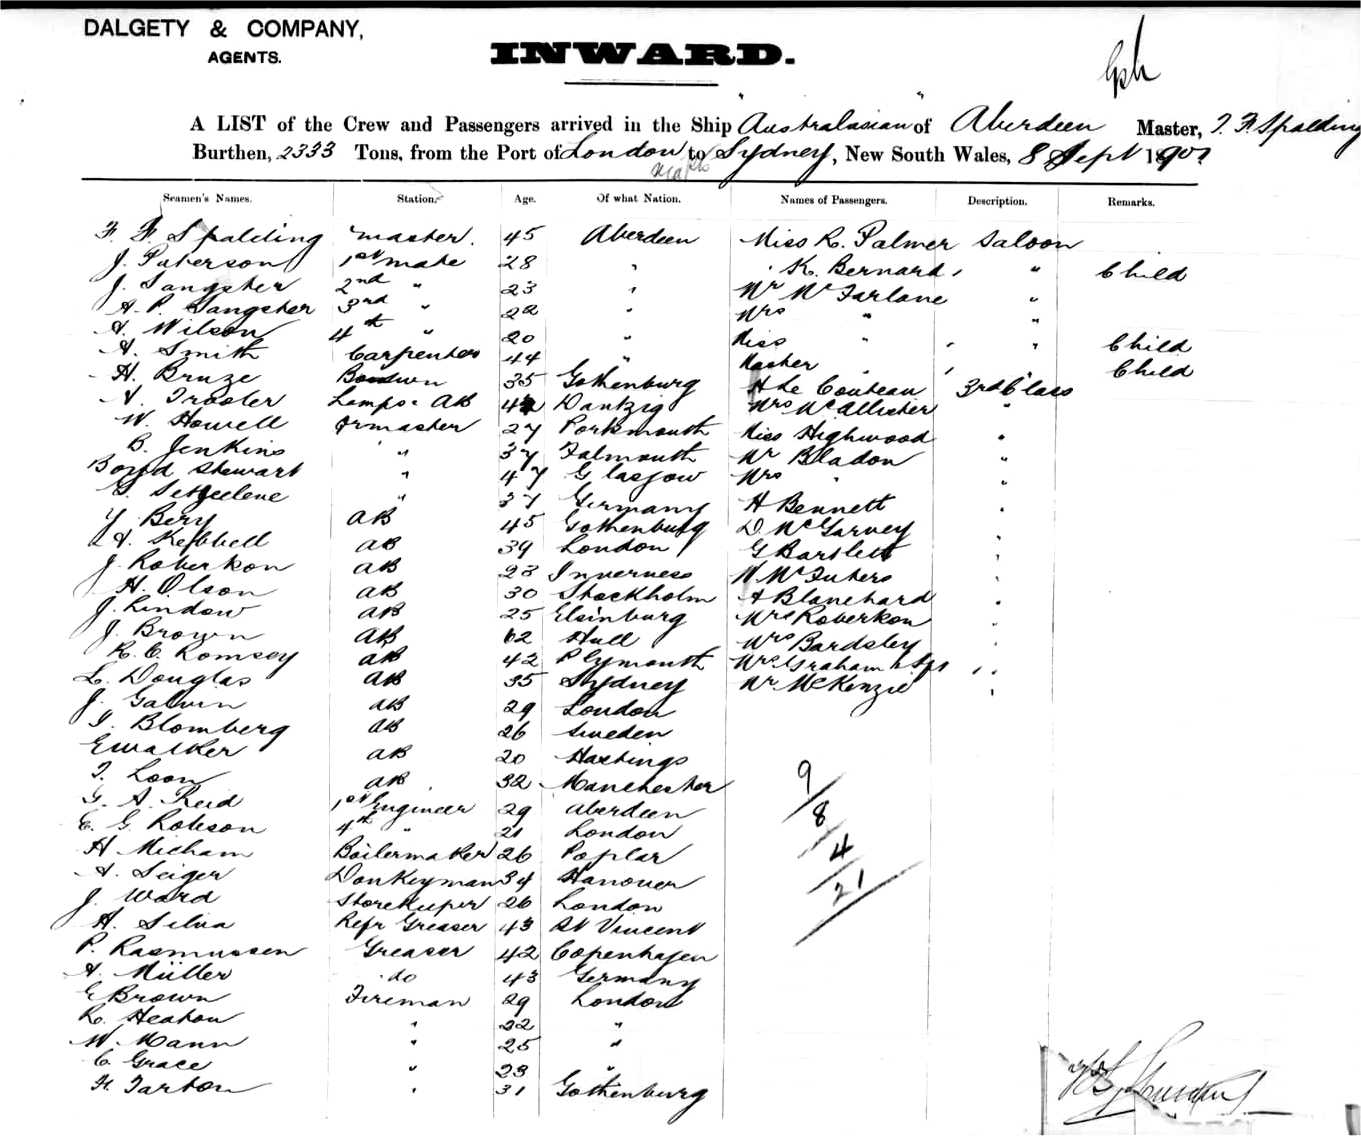 DALGETY & COMPANY,
AGENTS.
INWARD.
A LIST of the Crew and Passengers arrived in the Ship "Australasian" of Aberdeen Master, J. F. Spalding
Burthen, 2333 Tons, from the Port of London to Sydney, New South Wales, 8 Sept 1901
Seamen's Names. Station. Age. Of what Nation. Names of Passengers. Description. Remarks.
F. F. Spalding master. 45 Aberdeen Miss R. Palmer Saloon
J. Paterson 1st mate 28 " " K. Bernard " " Child
J. Sangster 2nd " 23 " Mr McFarlane "
A. P. Sangster 3rd " 22 " Mrs " "
A. Wilson 4th " 20 " Miss " " " Child
A. Smith Carpenter 44 " Master " " Child
H. Bruze Boswn 35 Gothenburg H Le Couteau 3rd Class
A. Troster Lamps & AB Dantzig Mrs McAllister "
W. Howell Qrmaster 27 Portsmouth Miss Highwood "
B. Jenkins " 37 Falmouth Mr Bladon "
Boyd Stewart " 47 Glasgow Mrs " "
" 37 Germany H Bennett "
J. Berg AB 45 Gothenburg D. McGarvey "
A. Kebbell AB 39 London G Bartlett "
J. Robertson AB 23 Inverness "
H. Olson AB 30 Stockholm A Blanchard "
J. Lindow AB 25 Elsinburg Mrs Robertson "
J. Brown AB 62 Hull Mrs Bardsley "
R. C. Romsey AB 42 Plymouth Mrs Graham " "
L. Douglas AB 35 Sydney Mr McKenzie "
J. Galvin AB 29 London
J. Blomberg AB 26 Sweden
E Walker AB 20 Hastings
T. Loon AB 32 Manchester
G. A. Reid 1st Engineer 29 Aberdeen
E. G. Robson 4th " 21 London
H Micham Boilermaker 26 Poplar
A. Seiger Donkeyman 34 Hanover
J. Ward Storekeeper 26 London
A. Silva Refr Greaser 43 St Vincent
P. Rasmussen Greaser 42 Copenhagen
A. Müller do 43 Germany
E Brown Fireman 29 London
R. Heaton " 22 "
W. Mann " 25 "
C. Grace " 23 "
F. Tarbon " 31 Gothenburg
9
8
4
21